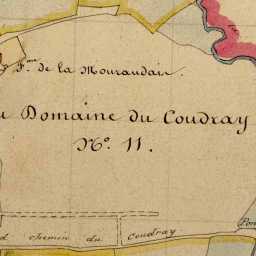 F.me de la Mouraudais.
Domaine du Coudray
N.o 11.
chemin du Coudray